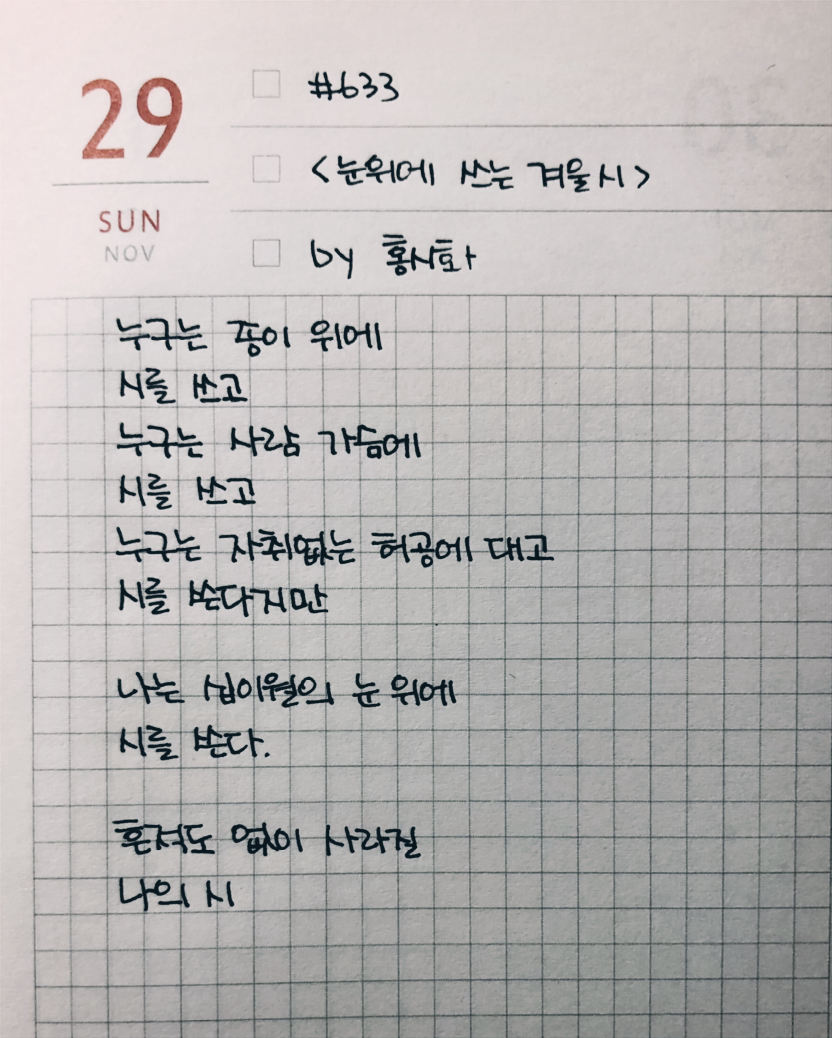 29
SUN
NOV
#633
<눈위에 쓰는 겨울 시>
by 홍시화
누구는 종이 위에
시를 쓰고
누구는 사람 가슴에
시를 쓰고
누구는 자취없는 허공에 대고
시를 쓴다지만
나는 십이월의 눈 위에
시를 쓴다.
흔적도 없이 사라질
나의 시